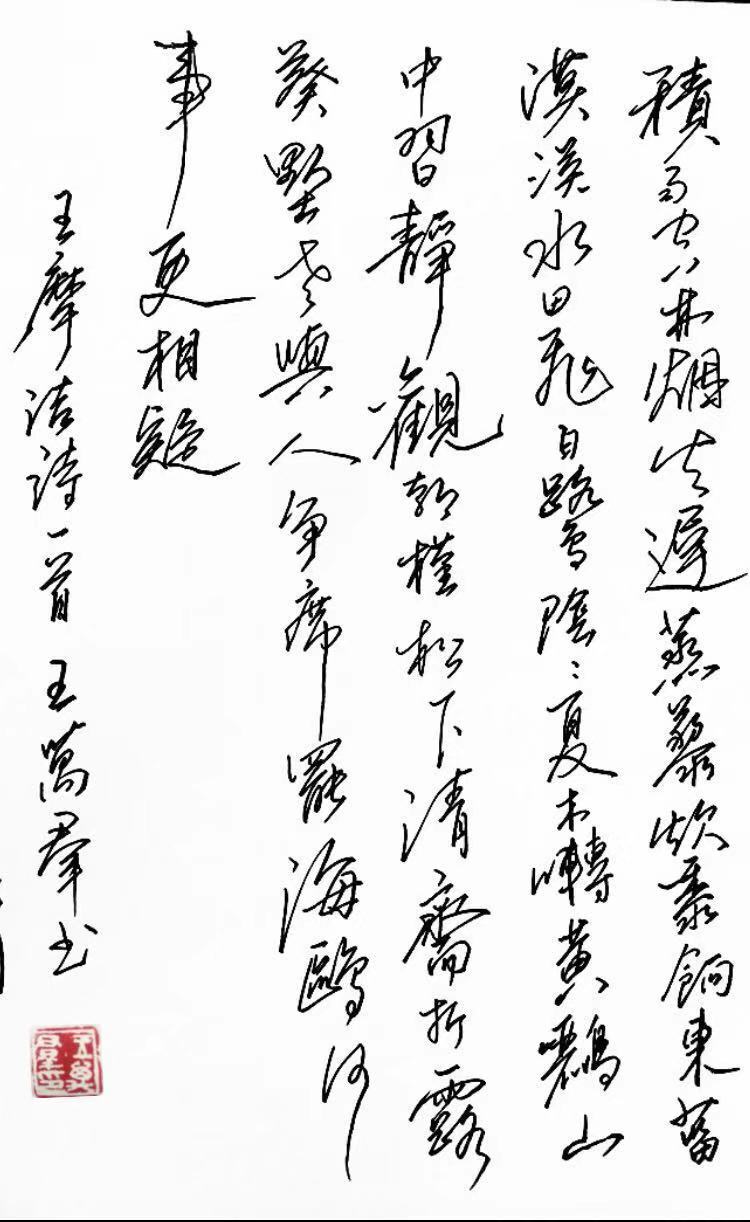 積雨空林煙火遲蒸藜炊黍餉東菑
漠漠水田飛白鷺陰〻夏木囀黃鸝山
中習靜觀朝槿松下清齋折露
葵墅老與人爭席罷海鷗何
事更相疑
王摩詰詩一首王萬羣书
王萬羣印